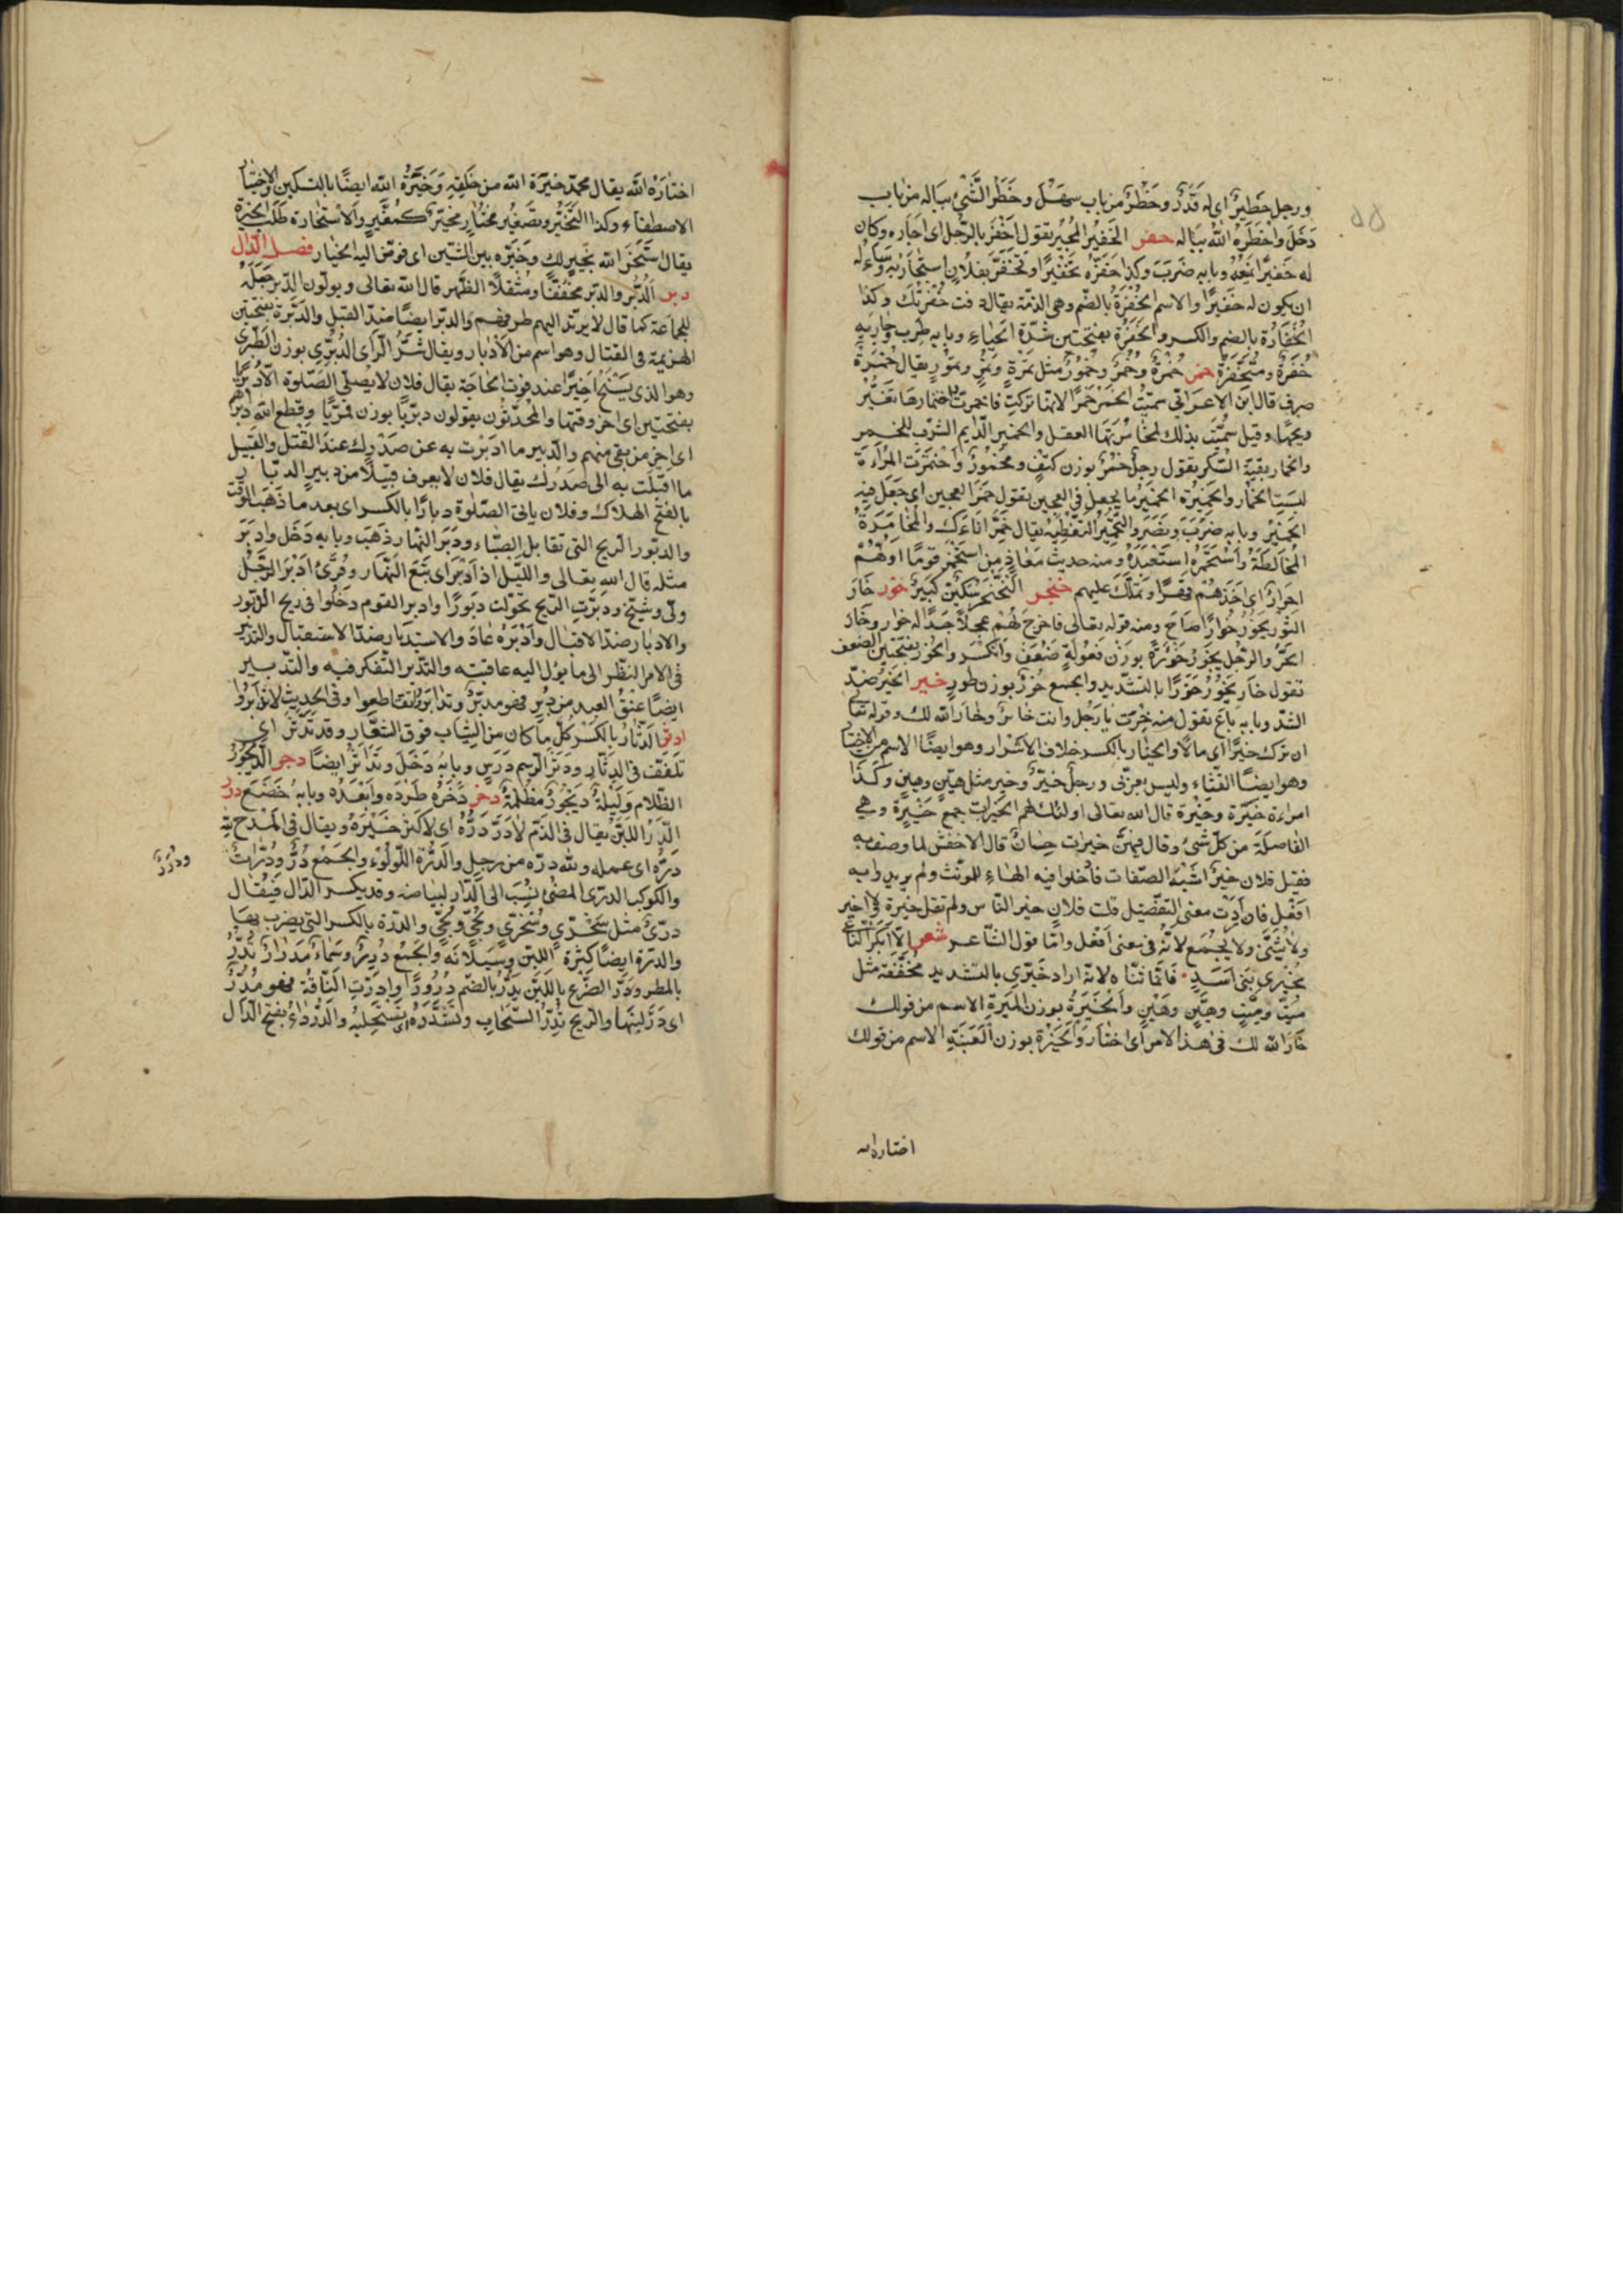 ورجل خطير اى له قدر وخطر من باب سهل وخطر الشئ بباله من باب
دخل واخطره الله بباله خفر الخفير المجير تقول اخفر بالرجل اى اجاره وكان
له خفيرا يمنعه وبابه ضرب وكذا خفره تخفيرا وتخفر بفلان استجار به وساءله
ان يكون له خفيرا والاسم الخفرة بالضم وهى الذمة يقال وفت خفرتك وكذا
الخفارة بالضم والكسر والخفر بفتحتين شدة الحياء وبابه طرب وجارية
خفرة ومتخفرة خمر خمرة وخمر وخمور مثل تمرة وتمر وتمور يقال خمرة
صرف قال ابن الاعرابى سميت الخمر خمرا لانها تركت فاختمرت واختمارها تغير
ريحها وقيل سميت بذلك لمخامرتها العقل والخمير الدايم الشرب للخمر
والخمار بقية السكر تقول رجل خمر بوزن كتف ومخمور واختمرت المراءة
لبست الخمار والخميرة الخمير ما يجعل فى العجين تقول خمر العجين اى جعل فيه
الخمير وبابه ضرب ونصر والتخمير التغطية يقال خمر اناءك والمخامرة
المخالطة واستخمره استعبده ومنه حديث معاذ من استخمر قوما اولهم
احرار اى اخذهم قهرا وتملك عليهم خنجر الخنجر سكين كبير خور خار
الثور يخور خوارا صاح ومنه قوله تعالى فاخرج لهم عجلا جسدا له خوار وخار
الحر والرجل يخور خؤرة بوزن فعولة ضعف وانكسر والخور بفتحتين الضعف
تقول خار يخور خورا بالتشديد والجمع خور بوزن طور خير الخير ضد
الشر وبابه باع تقول منه خرت يا رجل وانت خائر وخار الله لك وقوله تعا
ان ترك خيرا اى مالا والخيار بالكسر خلاف الاشرار وهو ايضا الاسم من الاختيا
وهو ايضا القثاء وليس بعربى ورجل خير وخير مثل هين وهين وكذا
امراءة خيرة وخيرة قال الله تعالى اولئك لهم الخيرات جمع خيرة وهى
الفاضلة من كل شئ وقال فيهن خيرات حسان قال الاخفش لما وصف به
فقيل فلان خير اشبه الصفات فادخلوا فيه الهاء للمونث ولم يريدوا به
افعل فان اردت معنى التفضيل قلت فلان خير الناس ولم تقل خيرة ولا اخير
ولا يثنى ولا يجمع لانه فى معنى افعل واما قول الشاعر شعر الا بكر الناعى
بخيرى بنى اسد فانما ثناه لانه اراد خيرى بالتشديد مخففة مثل
ميت وميت وهين وهين والخيرة بوزن الميرة الاسم من قولك
خار الله لك فى هذا الامر اى اختار والخيرة بوزن العنبة الاسم من قولك
اختاره الله
اختاره الله يقال محمد خيرة الله من خلقه وخيرة الله ايضا بالتسكين والاختيار
الاصطفاء وكذا التخير وتصغير مختار مخير كمغير والاستخارة طلب الخيرة
يقال استخر الله يخير لك وخيره بين الشيئين اى فوض اليه الخيار فصل الدال
دبر الدبر والدبر مخففا ومثقلا الظهر قال الله تعالى ويولون الدبر جعله
للجماعة كما قال لا يرتد اليهم طرفهم والدبر ايضا ضد القبل والدبرة بفتحتين
الهزيمة فى القتال وهو اسم من الادبار ويقال شر الراى الدبرى بوزن الطبرى
وهو الذى يسنح اخيرا عند فوت الحاجة يقال فلان لا يصلى الصلوة الا دبريا
بفتحتين اى اخر وقتها والمحدثون يقولون دبريا بوزن قمريا وقطع الله دابرهم
اى اخر من بقى منهم والدبير ما ادبرت به عن صدرك عند الفتل والقبيل
ما اقبلت به الى صدرك يقال فلان لا يعرف قبيلا من دبير الدبار
بالفتح الهلاك وفلان ياتى الصلوة دبارا بالكسر اى بعد ما ذهب الوقت
والدبور الريح التى تقابل الصباء ودبر النهار ذهب وبابه دخل وادبر
مثله قال الله تعالى والليل اذا دبر اى تبع النهار وقرئ ادبر الرجل
ولى وشيخ ودبرت الريح تحولت دبورا وادبر القوم دخلوا فى ريح الدبور
والادبار ضد الاقبال وادبره عاد والاستدبار ضد الاستقبال والتدبر
فى الامر النظر الى ما يؤل اليه عاقبته والتدبر التفكر فيه والتدبير
ايضا عتق العبد من دبر فهو مدبر وتدابروا تقاطعوا وفى الحديث لا تدابروا
دثر الدثار بالكسر كل ما كان من الثياب فوق الشعار وقد تدثر اى
تلفف فى الدثار ودثر الرسم درس وبابه دخل وتداثر ايضا دجر الديجور
الظلام وليلة ديجور مظلمة دخر دخره طرده وابعده وبابه خضع درر
الدر اللبن يقال فى الذم لا در دره اى لا كثر خيره ويقال فى المدح لله
دره اى عمله ولله دره من رجل والدرة اللؤلوء والجمع در ودرات
ودرر
والكوكب الدرى المضئ نسب الى الدر لبياضه وقد يكسر الدال فيقال
درى مثل سخرى وسخرى ولجى ولجى والدرة بالكسر التى يضرب بها
والدرة ايضا كثرة اللبن وسيلانه والجمع درر وسماء مدرار تدر
بالمطر ودر الضرع باللبن يدر بالضم درورا وادرت الناقة فهو مدر
اى در لبنها والريح تدر السحاب وتستدره اى تستحلبه والدرداء بفتح الدال